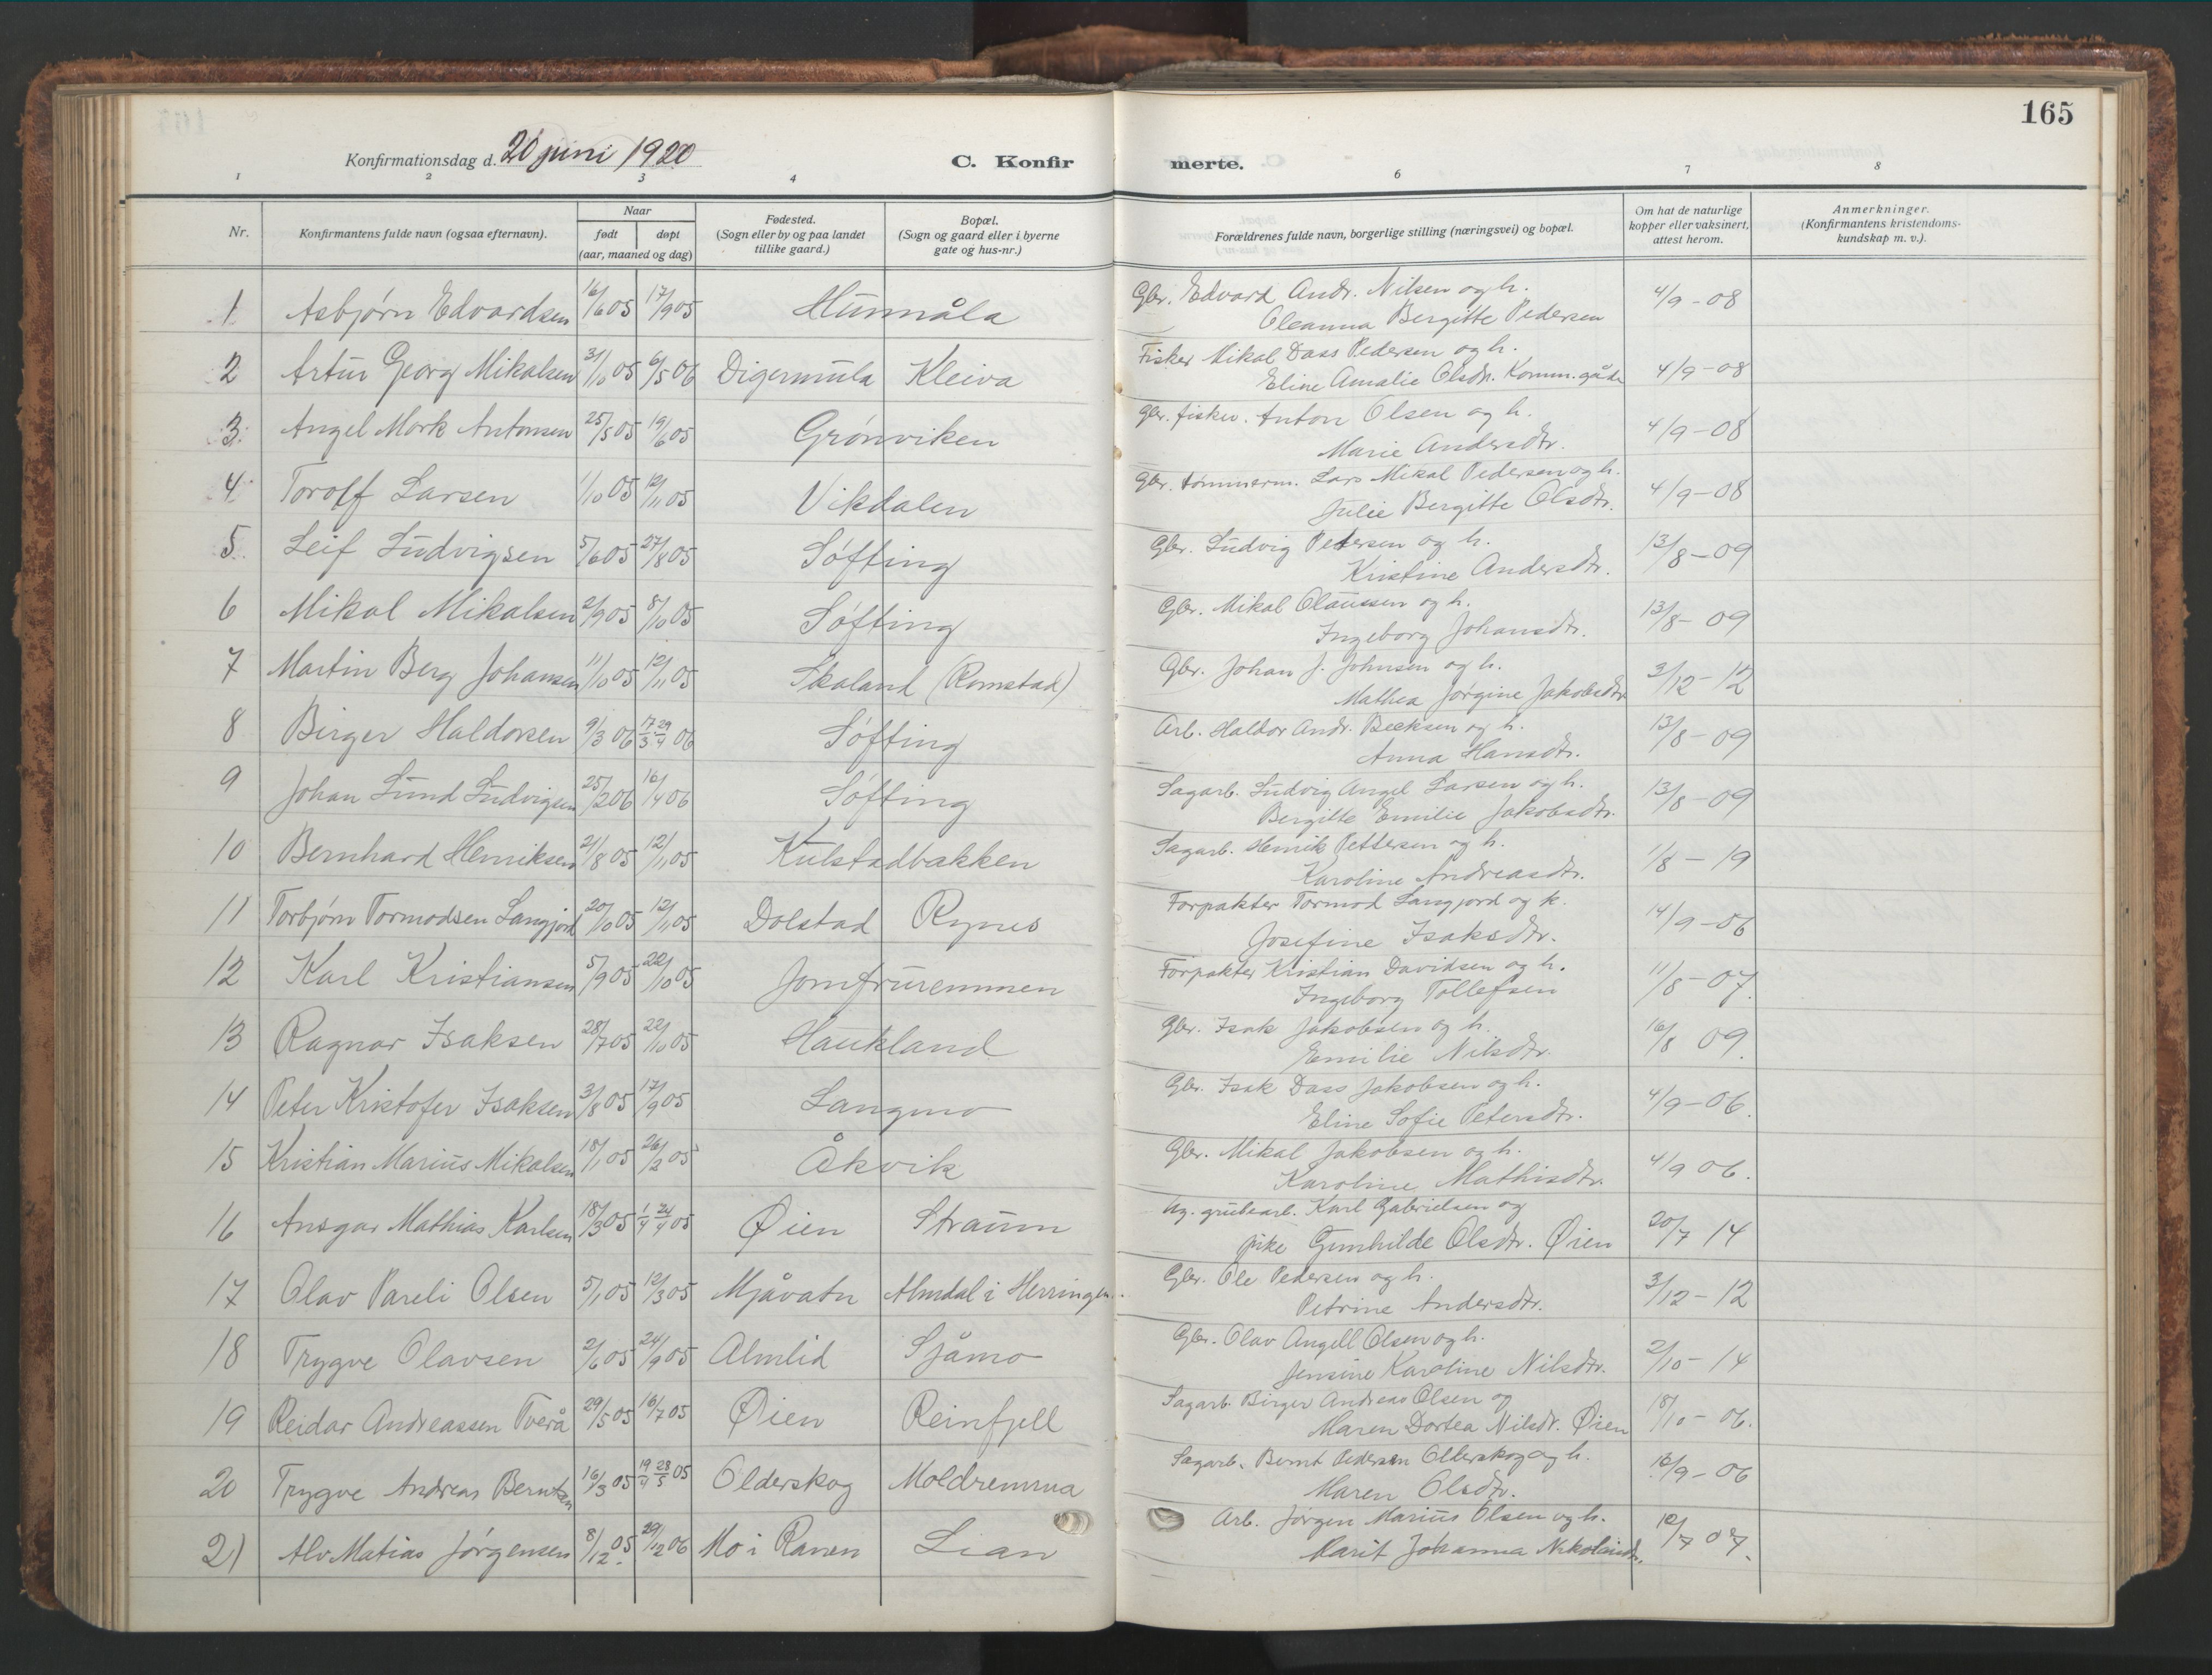 165
Konfirmationsdag d. 20 juni 1920 C. Konfirmerte.
1 2 3 4 6 7 8
Nr. Konfirmantens fulde navn (ogsaa efternavn). Naar født døpt (aar, maaned og dag) Fødested. (Sogn eller by og paa landet tillike gaard.) Bopæl. (Sogn og gaard eller i byerne gate og hus-nr.) Forældrenes fulde navn, borgerlige stilling (næringsvei) og bopæl. Om hat de naturlige kopper eller vaksinert, attest herom. Anmerkninger. (Konfirmantens kristendomskundskap m. v.).
1 Asbjørn Edvardsen 16/6 05 17/9 05 Hunnåla Gbr. Edvard Andr. Nilsen og h. 4/9-08
Oleanna Bergitte Pedersen
2 Artur Georg Mikalsen 31/10 05 6/5 06 Digermula Kleiva Fisker Mikal Dass Pedersen og h. 4/9-08
Eline Amalie Olsdtr.
3 Angel Mork Antonsen 25/5 05 19/6 05 Grønviken Gbr. fisker. Anton Olsen og h. 4/9-08
Marie Andersdtr.
4 Torolf Larsen 1/10 05 12/11 05 Vikdalen Gbr. tømmerm. Lars Mikal Pedersen og h. 4/9-08
Julie Bergitte Olsdtr.
5 Leif Ludvigsen 5/6 05 27/8 05 Søfting Gbr. Ludvig Petersen og h. 13/8-09
Kristine Andersdtr.
6 Mikal Mikalsen 2/9 05 8/10 05 Søfting Gbr. Mikal Olaussen og h. 13/8-09
Ingeborg Johansdtr.
7 Martin Berg Johansen 11/10 05 12/11 05 Skaland (Romstad) Gbr. Johan J. Johnsen og h. 3/12-12
Mathea Jørgine Jakobsdtr.
8 Birger Haldorsen 9/3 06 17/3 29/4 06 Søfting Arb. Haldor Andr. Becksen og h. 13/8-09
Anna Hansdtr.
9 Johan Lund Ludvigsen 25/2 06 16/4 06 Søfting Sagarb. Ludvig Angel Larsen og h. 13/8-09
Bergitte Emilie Jakobsdtr.
10 Bernhard Henriksen 21/8 05 12/11 05 Kulstadbakken Sagarb. Henrik Pettersen og h. 1/8-19
Karoline Andreasdtr.
11 Torbjørn Tormodsen Langjord 20/10 05 12/11 05 Dolstad Rynes Forpakter Tormod Langjord og k. 14/9-06
Josefine Isaksdtr.
12 Karl Kristiansen 5/9 05 22/10 05 Jomfruremmen Forpakter Kristian Davidsen og h. 11/8-07.
Ingeborg Tollefsen
13 Ragnar Isaksen 28/7 05 22/10 05 Haukland Gbr. Isak Jakobsen og h. 16/8 09.
Emilie Nilsdtr.
14 Peter Kristofer Isaksen 3/8 05 17/9 05 Langmo Gbr. Isak Dass Jakobsen og h. 4/9-06.
Eline Sofie Petersdtr.
15 Kristian Marius Mikalsen 18/1 05 26/2 05 Åkvik Gbr. Mikal Jakobsen og h. 4/9 06.
Karoline Mathisdtr.
16 Ansgar Mathias Karlsen 18/3 05 1/4 24/4 05 Øien Straum Ug. grubearb. Karl Gabrielsen og 20/7 14
pike Gunhilde Olsdtr. Øien
17 Olav Pareli Olsen 5/1 05 12/3 05 Mjåvatn Almdal i Herringen. Gbr. Ole Pedersen og h. 3/12-12
Petrine Andersdtr.
18 Trygve Olavsen 2/6 05 24/9 05 Almlid Sjåmo Gbr. Olav Angell Olsen og h. 2/10-14
Jensine Karoline Nilsdtr.
19 Reidar Andreassen Tverå 29/5 05 16/7 05 Øien Reinfjell Sagarb. Birger Andreas Olsen og 18/10-06.
Maren Dortea Nilsdtr. Øien
20 Trygve Andreas Berntsen 16/3 05 19/4 28/5 05 Olderskog Moldremma Sagarb. Bernt Pedersen Olderskog og h. 16/9-06
Maren Olsdtr.
21 Alv Matias Jørgensen 8/12 05. 29/12 06 Mo i Ranen Lian Arb. Jørgen Marius Olsen og h. 12/7 07.
Marit Johanna